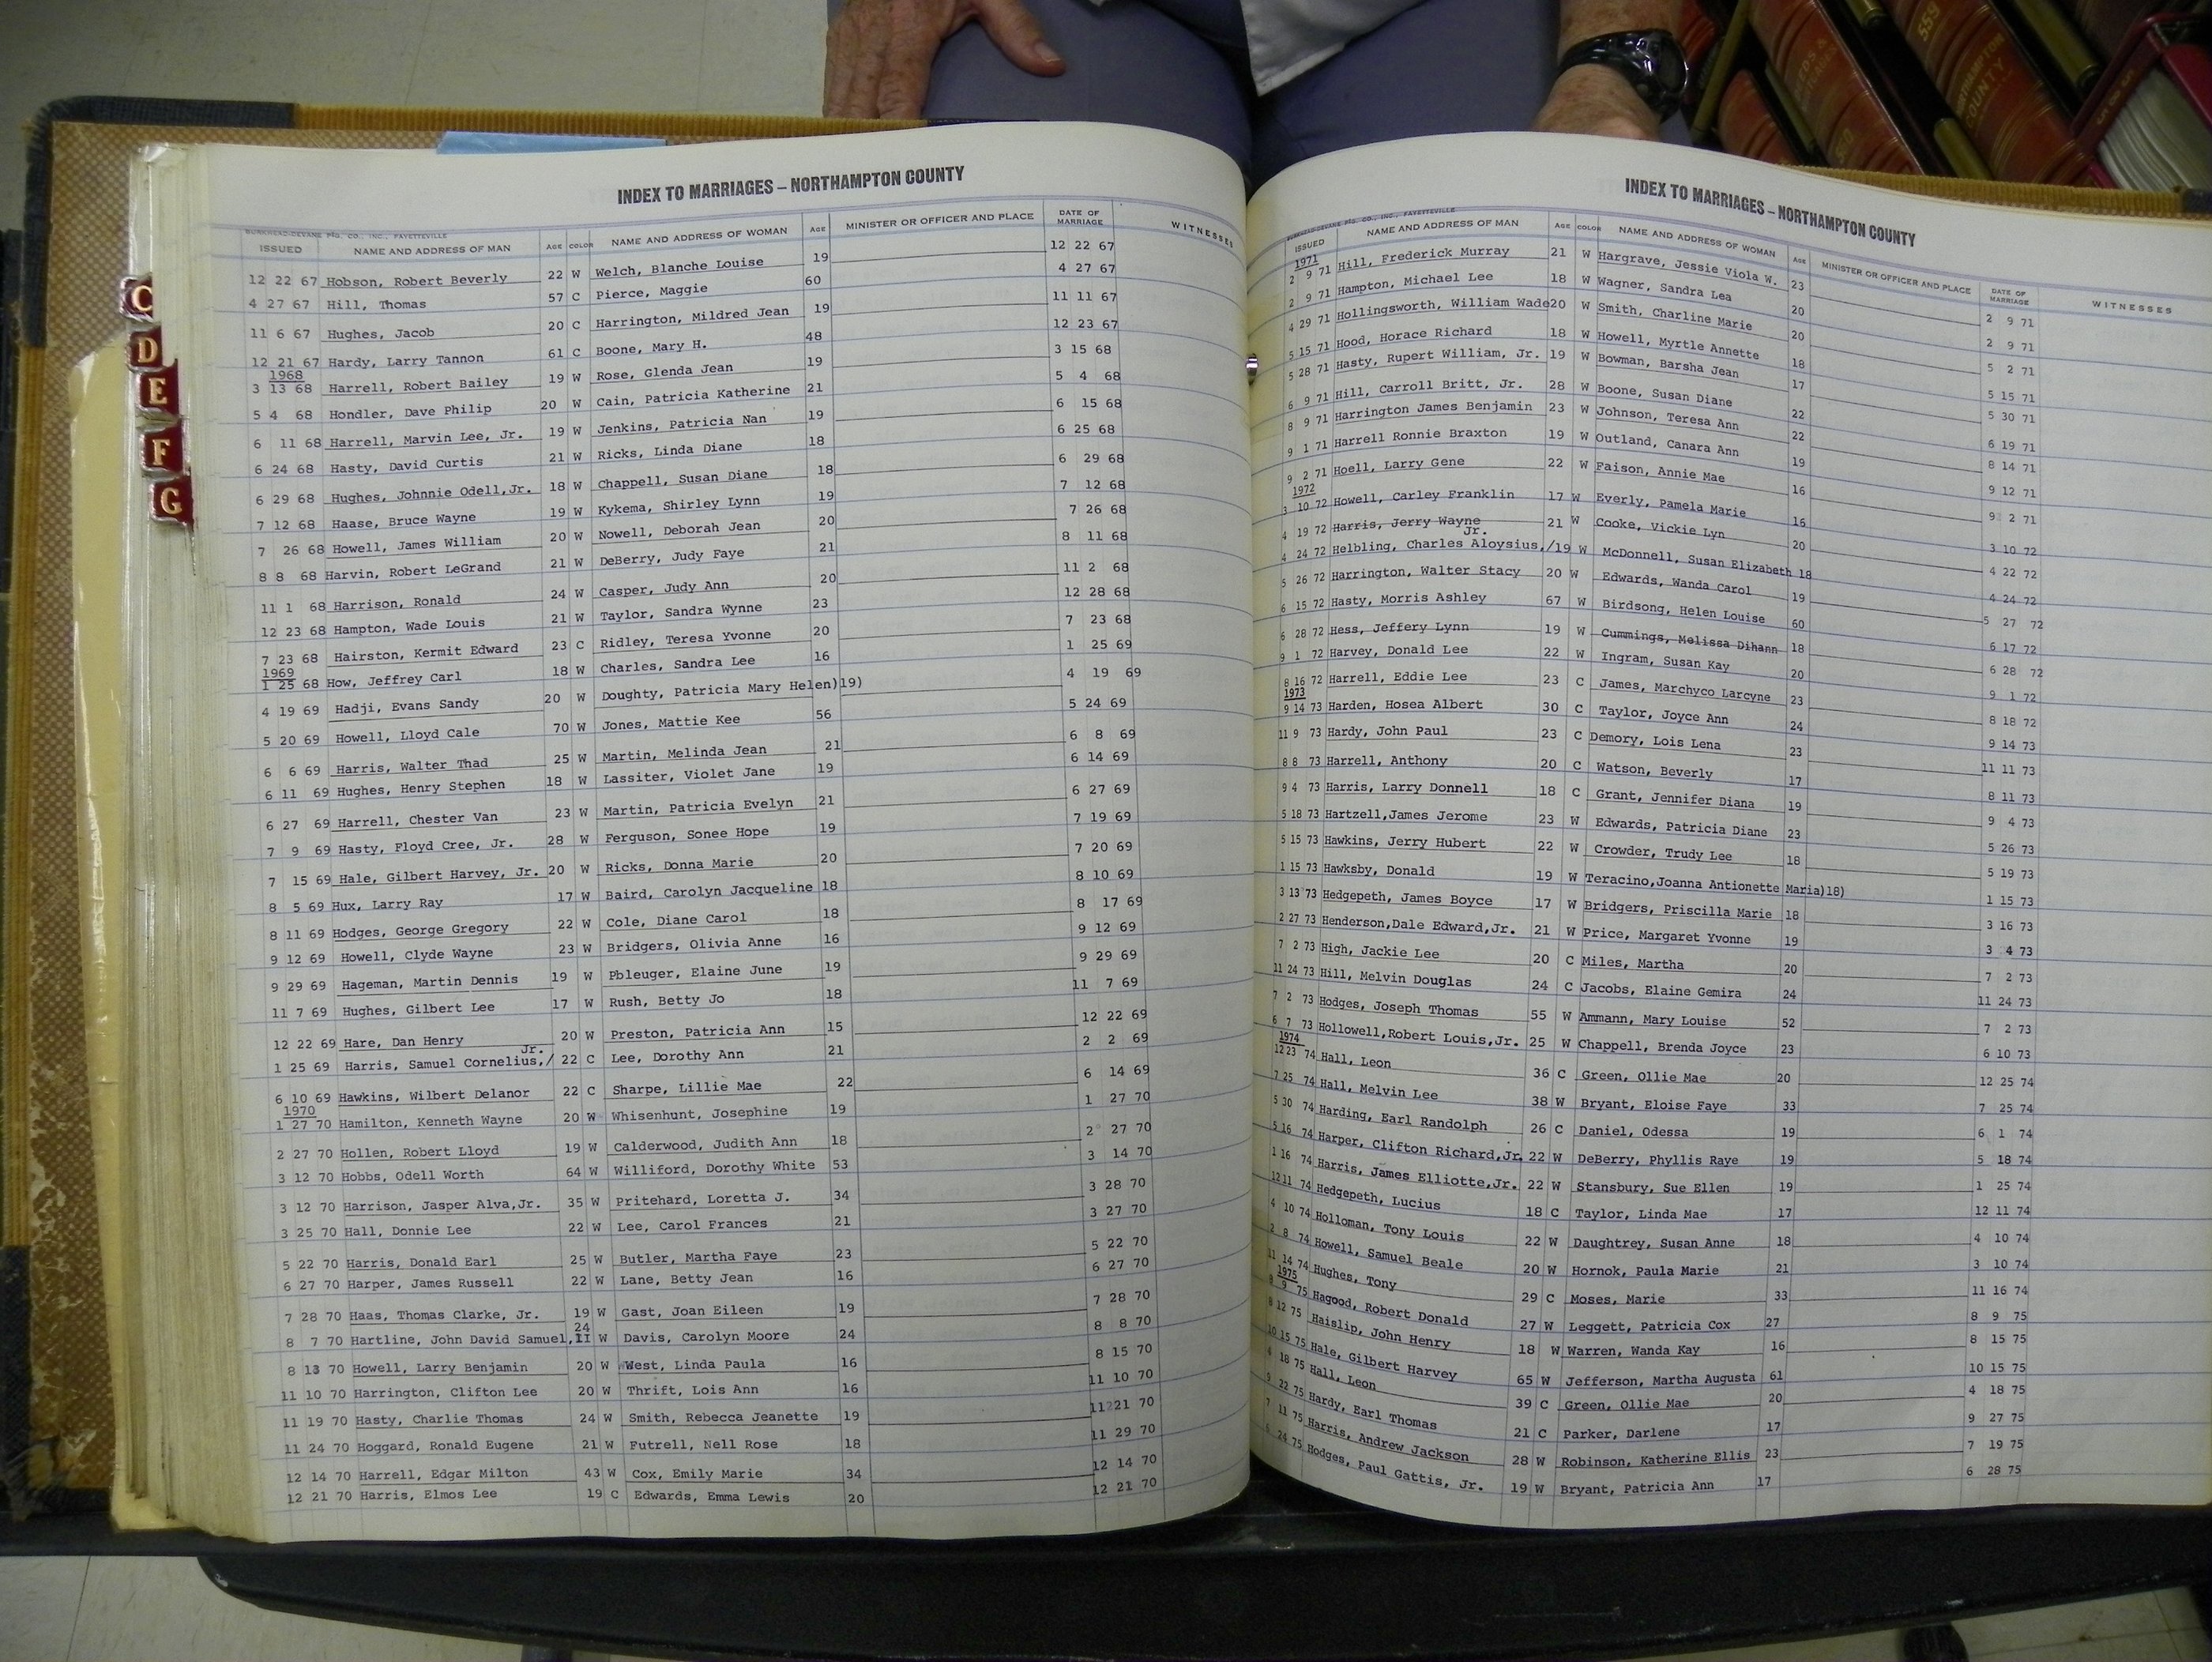 INDEX TO MARRIAGES – NORTHAMPTON COUNTY
BURKHEAD-DEVANE PTG. CO., INC., FAYETTEVILLE
ISSUED NAME AND ADDRESS OF MAN AGE COLOR NAME AND ADDRESS OF WOMAN AGE MINISTER OR OFFICER AND PLACE DATE OF MARRIAGE WITNESSES
12 22 67 Hobson, Robert Beverly 22 W Welch, Blanche Louise 19 12 22 67
4 27 67 Hill, Thomas 57 C Pierce, Maggie 60 4 27 67
11 6 67 Hughes, Jacob 20 C Harrington, Mildred Jean 19 11 11 67
12 21 67 Hardy, Larry Tannon 61 C Boone, Mary H. 48 12 23 67
1968
3 13 68 Harrell, Robert Bailey 19 W Rose, Glenda Jean 19 3 15 68
5 4 68 Hondler, Dave Philip 20 W Cain, Patricia Katherine 21 5 4 68
6 11 68 Harrell, Marvin Lee, Jr. 19 W Jenkins, Patricia Nan 19 6 15 68
6 24 68 Hasty, David Curtis 21 W Ricks, Linda Diane 18 6 25 68
6 29 68 Hughes, Johnnie Odell,Jr. 18 W Chappell, Susan Diane 18 6 29 68
7 12 68 Haase, Bruce Wayne 19 W Kykema, Shirley Lynn 19 7 12 68
7 26 68 Howell, James William 20 W Nowell, Deborah Jean 20 7 26 68
8 8 68 Harvin, Robert LeGrand 21 W DeBerry, Judy Faye 21 8 11 68
11 1 68 Harrison, Ronald 24 W Casper, Judy Ann 20 11 2 68
12 23 68 Hampton, Wade Louis 21 W Taylor, Sandra Wynne 23 12 28 68
7 23 68 Hairston, Kermit Edward 23 C Ridley, Teresa Yvonne 20 7 23 68
1969
1 25 68 How, Jeffrey Carl 18 W Charles, Sandra Lee 16 1 25 69
4 19 69 Hadji, Evans Sandy 20 W Doughty, Patricia Mary Helen)19) 4 19 69
5 20 69 Howell, Lloyd Cale 70 W Jones, Mattie Kee 56 5 24 69
6 6 69 Harris, Walter Thad 25 W Martin, Melinda Jean 21 6 8 69
6 11 69 Hughes, Henry Stephen 18 W Lassiter, Violet Jane 19 6 14 69
6 27 69 Harrell, Chester Van 23 W Martin, Patricia Evelyn 21 6 27 69
7 9 69 Hasty, Floyd Cree, Jr. 28 W Ferguson, Sonee Hope 19 7 19 69
7 15 69 Hale, Gilbert Harvey, Jr. 20 W Ricks, Donna Marie 20 7 20 69
8 5 69 Hux, Larry Ray 17 W Baird, Carolyn Jacqueline 18 8 10 69
8 11 69 Hodges, George Gregory 22 W Cole, Diane Carol 18 8 17 69
9 12 69 Howell, Clyde Wayne 23 W Bridgers, Olivia Anne 16 9 12 69
9 29 69 Hageman, Martin Dennis 19 W Pbleuger, Elaine June 19 9 29 69
11 7 69 Hughes, Gilbert Lee 17 W Rush, Betty Jo 18 11 7 69
12 22 69 Hare, Dan Henry 20 W Preston, Patricia Ann 15 12 22 69
1 25 69 Harris, Samuel Cornelius,/ Jr. 22 C Lee, Dorothy Ann 21 2 2 69
6 10 69 Hawkins, Wilbert Delanor 22 C Sharpe, Lillie Mae 22 6 14 69
1970
1 27 70 Hamilton, Kenneth Wayne 20 W Whisenhunt, Josephine 19 1 27 70
2 27 70 Hollen, Robert Lloyd 19 W Calderwood, Judith Ann 18 2 27 70
3 12 70 Hobbs, Odell Worth 64 W Williford, Dorothy White 53 3 14 70
3 12 70 Harrison, Jasper Alva,Jr. 35 W Pritehard, Loretta J. 34 3 28 70
3 25 70 Hall, Donnie Lee 22 W Lee, Carol Frances 21 3 27 70
5 22 70 Harris, Donald Earl 25 W Butler, Martha Faye 23 5 22 70
6 27 70 Harper, James Russell 22 W Lane, Betty Jean 16 6 27 70
7 28 70 Haas, Thomas Clarke, Jr. 19 W Gast, Joan Eileen 19 7 28 70
8 7 70 Hartline, John David Samuel,II 24 W Davis, Carolyn Moore 24 8 8 70
8 13 70 Howell, Larry Benjamin 20 W West, Linda Paula 16 8 15 70
11 10 70 Harrington, Clifton Lee 20 W Thrift, Lois Ann 16 11 10 70
11 19 70 Hasty, Charlie Thomas 24 W Smith, Rebecca Jeanette 19 11 21 70
11 24 70 Hoggard, Ronald Eugene 21 W Futrell, Nell Rose 18 11 29 70
12 14 70 Harrell, Edgar Milton 43 W Cox, Emily Marie 34 12 14 70
12 21 70 Harris, Elmos Lee 19 C Edwards, Emma Lewis 20 12 21 70
INDEX TO MARRIAGES – NORTHAMPTON COUNTY
BURKHEAD-DEVANE PTG. CO., INC., FAYETTEVILLE
ISSUED NAME AND ADDRESS OF MAN AGE COLOR NAME AND ADDRESS OF WOMAN AGE MINISTER OR OFFICER AND PLACE DATE OF MARRIAGE WITNESSES
1971
2 9 71 Hill, Frederick Murray 21 W Hargrave, Jessie Viola W. 23 2 9 71
2 9 71 Hampton, Michael Lee 18 W Wagner, Sandra Lea 20 2 9 71
4 29 71 Hollingsworth, William Wade 20 W Smith, Charline Marie 20 5 2 71
5 15 71 Hood, Horace Richard 18 W Howell, Myrtle Annette 18 5 15 71
5 28 71 Hasty, Rupert William, Jr. 19 W Bowman, Barsha Jean 17 5 30 71
6 9 71 Hill, Carroll Britt, Jr. 28 W Boone, Susan Diane 22 6 19 71
8 9 71 Harrington James Benjamin 23 W Johnson, Teresa Ann 22 8 14 71
9 1 71 Harrell Ronnie Braxton 19 W Outland, Canara Ann 19 9 12 71
9 2 71 Hoell, Larry Gene 22 W Faison, Annie Mae 16 9 2 71
1972
3 10 72 Howell, Carley Franklin 17 W Everly, Pamela Marie 16 3 10 72
4 19 72 Harris, Jerry Wayne 21 W Cooke, Vickie Lyn 20 4 22 72
4 24 72 Helbling, Charles Aloysius,/ Jr. 19 W McDonnell, Susan Elizabeth 18 4 24 72
5 26 72 Harrington, Walter Stacy 20 W Edwards, Wanda Carol 19 5 27 72
6 15 72 Hasty, Morris Ashley 67 W Birdsong, Helen Louise 60 6 17 72
6 28 72 Hess, Jeffery Lynn 19 W Cummings, Melissa Dihann 18 6 28 72
9 1 72 Harvey, Donald Lee 22 W Ingram, Susan Kay 20 9 1 72
8 16 72 Harrell, Eddie Lee 23 C James, Marchyco Larcyne 23 8 18 72
1973
9 14 73 Harden, Hosea Albert 30 C Taylor, Joyce Ann 24 9 14 73
11 9 73 Hardy, John Paul 23 C Demory, Lois Lena 23 11 11 73
8 8 73 Harrell, Anthony 20 C Watson, Beverly 17 8 11 73
9 4 73 Harris, Larry Donnell 18 C Grant, Jennifer Diana 19 9 4 73
5 18 73 Hartzell,James Jerome 23 W Edwards, Patricia Diane 23 5 26 73
5 15 73 Hawkins, Jerry Hubert 22 W Crowder, Trudy Lee 18 5 19 73
1 15 73 Hawksby, Donald 19 W Teracino,Joanna Antionette Maria)18) 1 15 73
3 13 73 Hedgepeth, James Boyce 17 W Bridgers, Priscilla Marie 18 3 16 73
2 27 73 Henderson,Dale Edward,Jr. 21 W Price, Margaret Yvonne 19 3 4 73
7 2 73 High, Jackie Lee 20 C Miles, Martha 20 7 2 73
11 24 73 Hill, Melvin Douglas 24 C Jacobs, Elaine Gemira 24 11 24 73
7 2 73 Hodges, Joseph Thomas 55 W Ammann, Mary Louise 52 7 2 73
6 7 73 Hollowell,Robert Louis,Jr. 25 W Chappell, Brenda Joyce 23 6 10 73
1974
12 23 74 Hall, Leon 36 C Green, Ollie Mae 20 12 25 74
7 25 74 Hall, Melvin Lee 38 W Bryant, Eloise Faye 33 7 25 74
5 30 74 Harding, Earl Randolph 26 C Daniel, Odessa 19 6 1 74
5 16 74 Harper, Clifton Richard,Jr. 22 W DeBerry, Phyllis Raye 19 5 18 74
1 16 74 Harris, James Elliotte,Jr. 22 W Stansbury, Sue Ellen 19 1 25 74
12 11 74 Hedgepeth, Lucius 18 C Taylor, Linda Mae 17 12 11 74
4 10 74 Holloman, Tony Louis 22 W Daughtrey, Susan Anne 18 4 10 74
2 8 74 Howell, Samuel Beale 20 W Hornok, Paula Marie 21 3 10 74
11 14 74 Hughes, Tony 29 C Moses, Marie 33 11 16 74
1975
8 9 75 Hagood, Robert Donald 27 W Leggett, Patricia Cox 27 8 9 75
8 12 75 Haislip, John Henry 18 W Warren, Wanda Kay 16 8 15 75
10 15 75 Hale, Gilbert Harvey 65 W Jefferson, Martha Augusta 61 10 15 75
4 18 75 Hall, Leon 39 C Green, Ollie Mae 20 4 18 75
9 22 75 Hardy, Earl Thomas 21 C Parker, Darlene 17 9 27 75
7 11 75 Harris, Andrew Jackson 28 W Robinson, Katherine Ellis 23 7 19 75
6 24 75 Hodges, Paul Gattis, Jr. 19 W Bryant, Patricia Ann 17 6 28 75
C
D
E
F
G
559
NORTHAMPTON
COUNTY